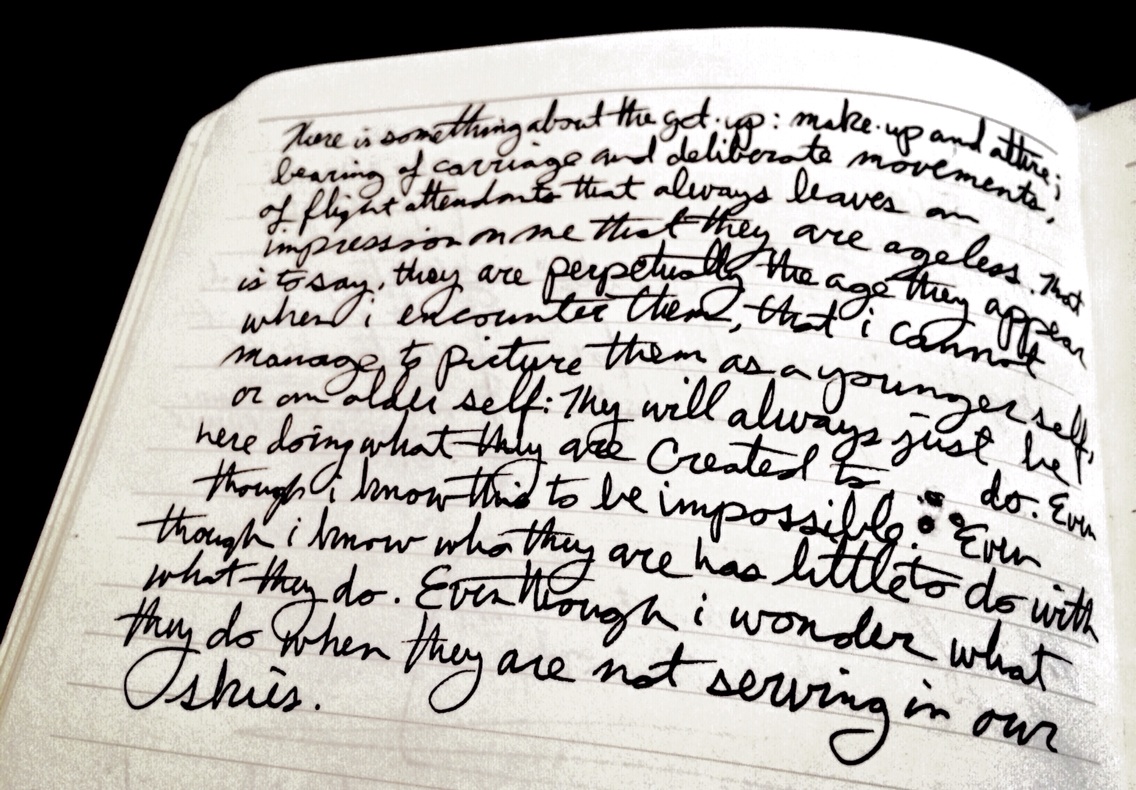 There is something about the get-up: make-up and attire;
bearing of carriage and deliberate movements,
of flight attendants that always leaves an
impression on me that they are ageless. That
is to say, they are perpetually the age they appear
when i encounter them, that i cannot
manage to picture them as a younger self,
or an older self: They will always just be
here doing what they are created to do. Even
though i know this to be impossible. Even
though i know who they are has little to do with
what they do. Even though i wonder what
they do when they are not serving in our
skies.